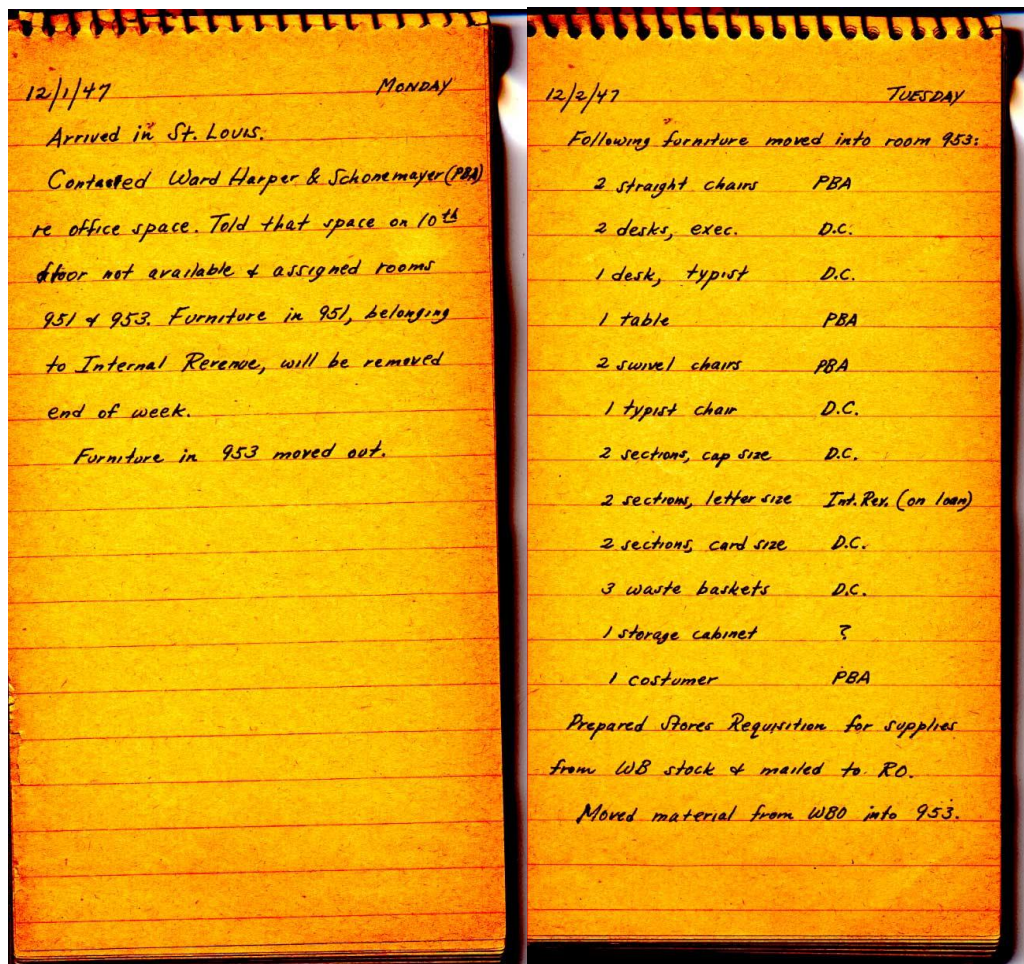 12/1/47 MONDAY
Arrived in St. Louis.
Contacted Ward Harper & Schonemayer (PBA)
re office space. Told that space on 10th
floor not available & assigned rooms
951 & 953. Furniture in 951, belonging
to Internal Revenue, will be removed
end of week.
Furniture in 953 moved out.
12/2/47 TUESDAY
Following furniture moved into room 953:
2 straight chairs PBA
2 desks, exec. D.C.
1 desk, typist D.C.
1 table PBA
2 swivel chairs PBA
1 typist chair D.C.
2 sections, cap size D.C.
2 sections, letter size Int. Rev. (on loan)
2 sections, card size D.C.
3 waste baskets D.C.
1 storage cabinet ?
1 costumer PBA
Prepared Stores Requisition for supplies
from WB stock & mailed to RO.
Moved material from WBO into 953.